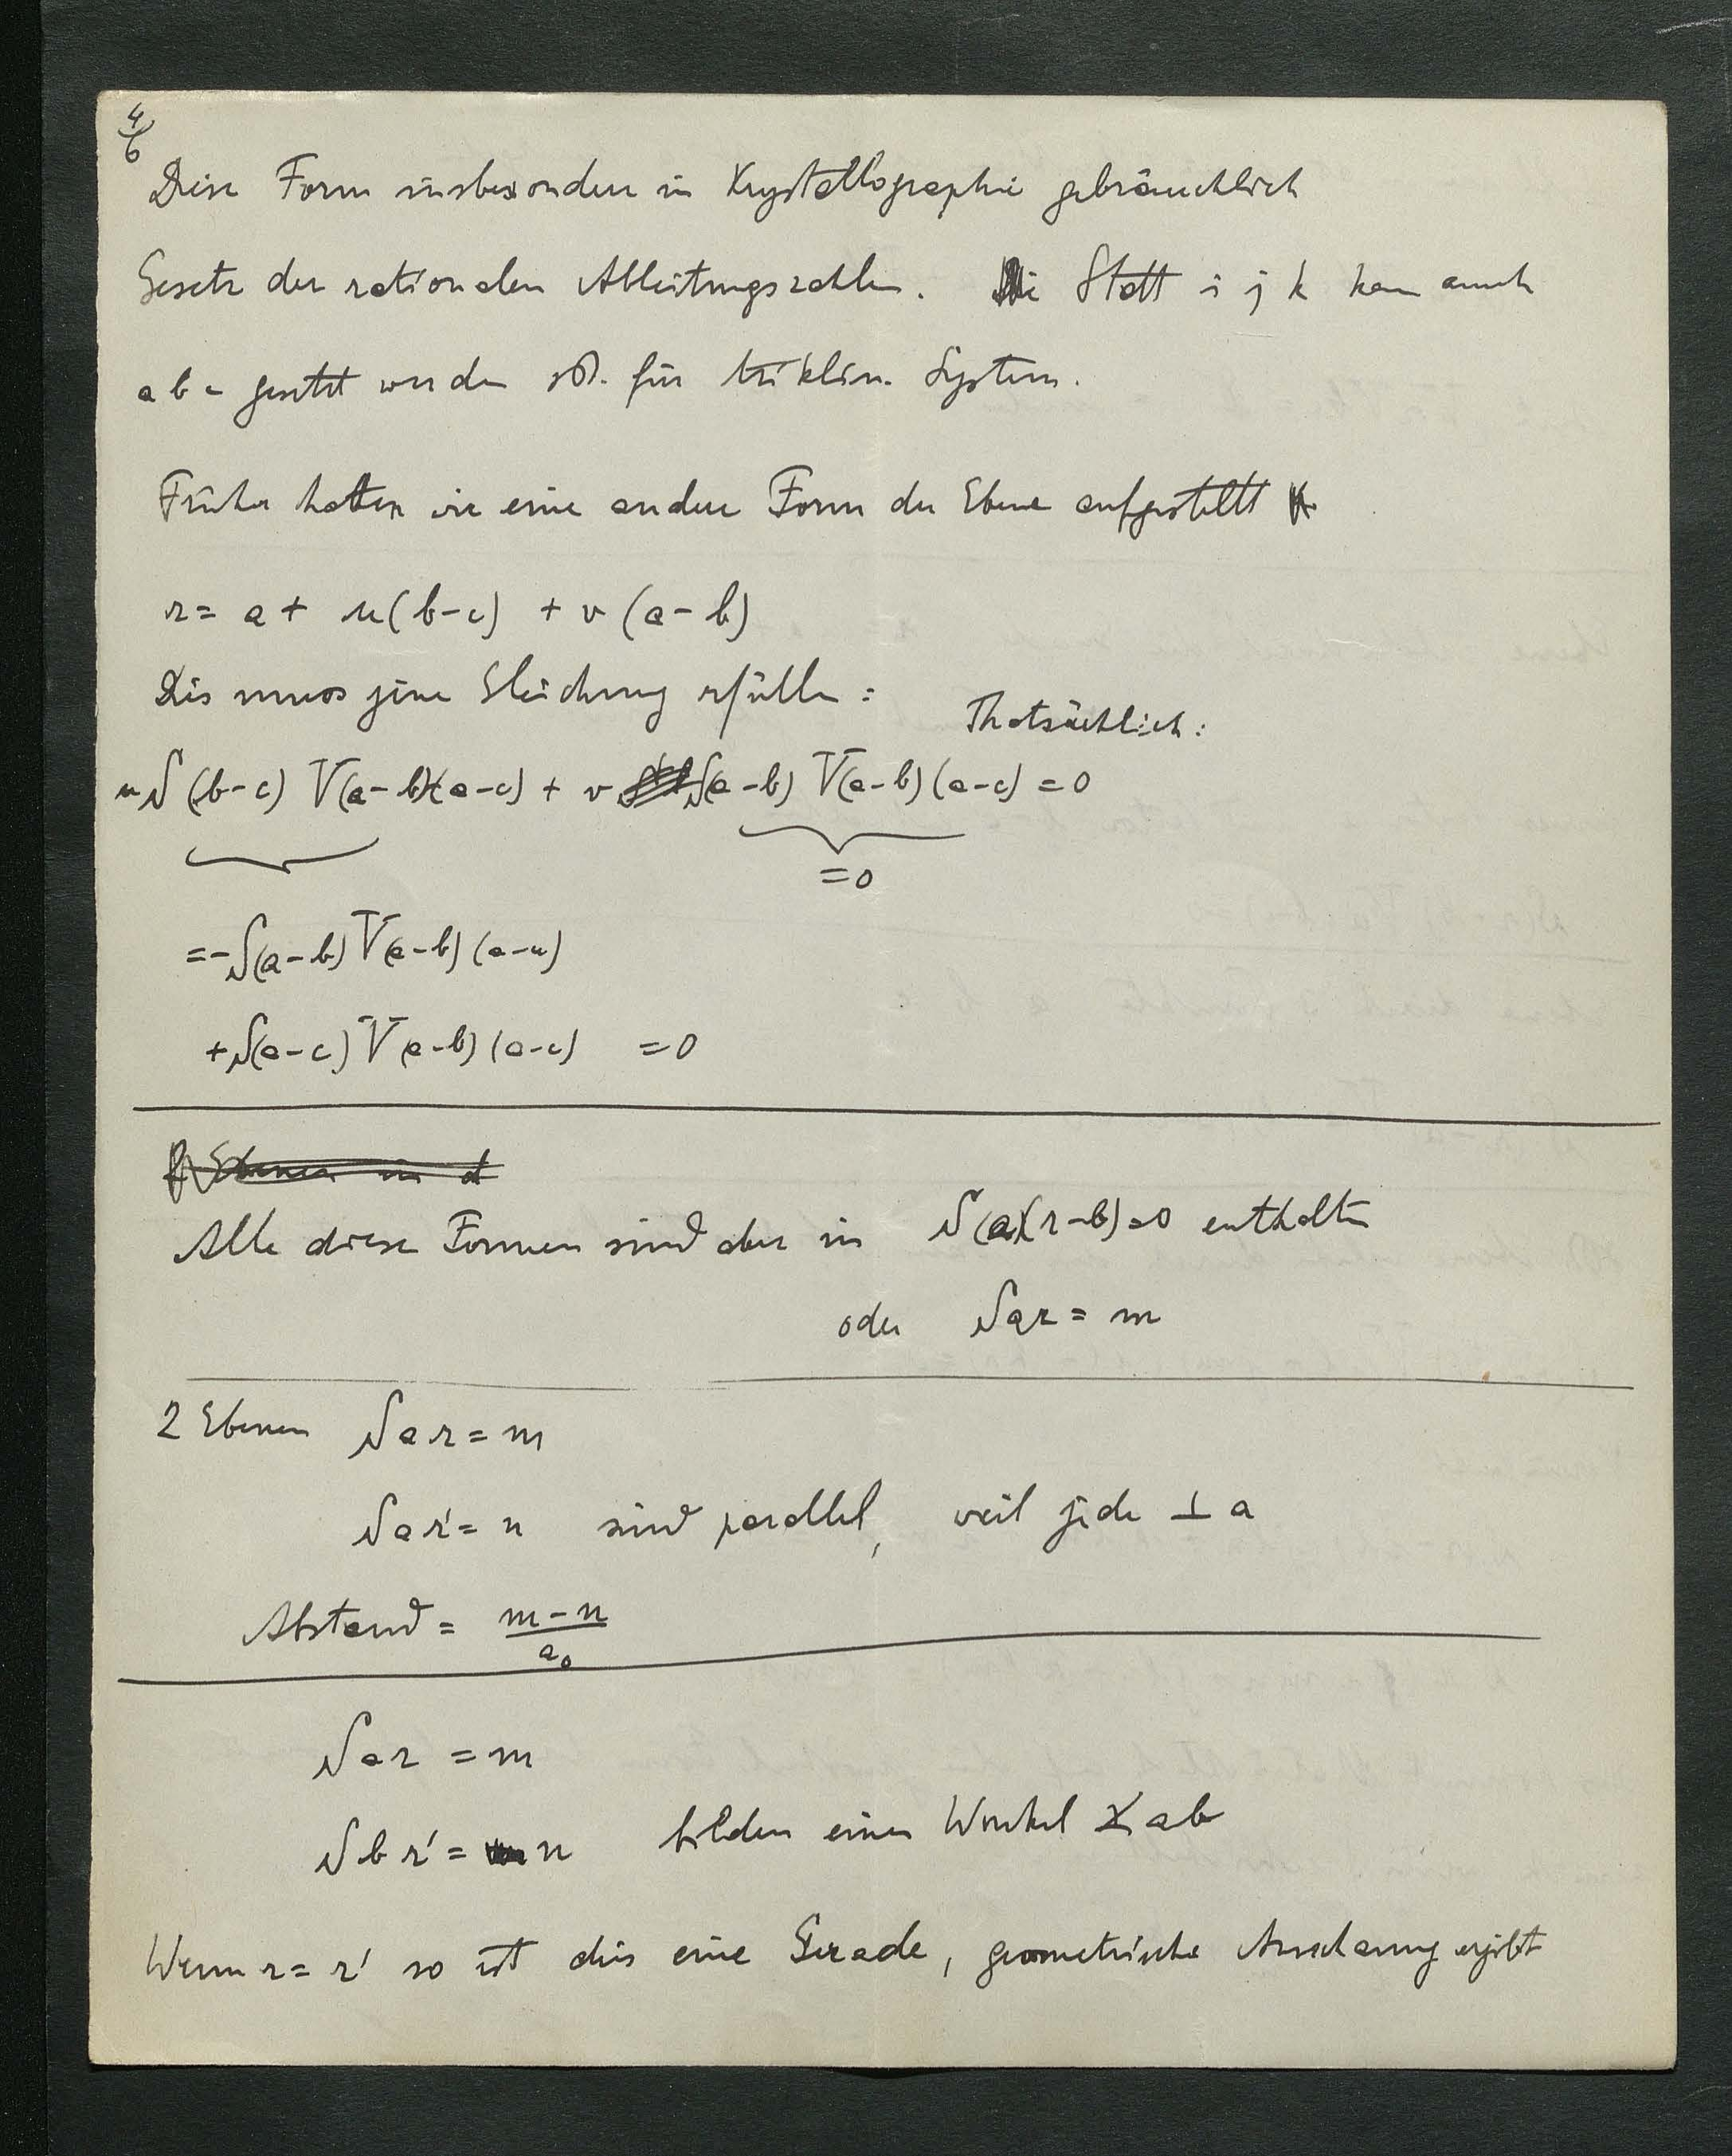 4/6
Diese Form insbesondere in Krystallographie gebräuchlich
Gesetz der rationalen Ableitungszahlen. Statt i j k kann auch
a b c gesetzt werden für triklin. System.
Früher hatten wir eine andere Form der Ebene aufgestellt
r = a + u(b-c) + v(a-b)
Dies muss jene Gleichung erfüllen:
Thatsächlich:
u S(b-c) V(a-b)(a-c) + v S(a-b) V(a-b)(a-c) = 0
=0
=-S(a-b) V(a-b)(a-c)
+S(a-c) V(a-b)(a-c) =0
Ebenen in d
Alle diese Formen sind aber in S(a)(r-b)=0 enthalten
oder Sar = m
2 Ebenen Sar = m
Sar' = n sind parallel, weil jede ⊥ a
Abstand = (m-n)/a₀
Sar = m
Sbr' = n bilden einen Winkel ∡ ab
Wenn r = r' so ist dies eine Gerade, geometrische Anschauung ergibt